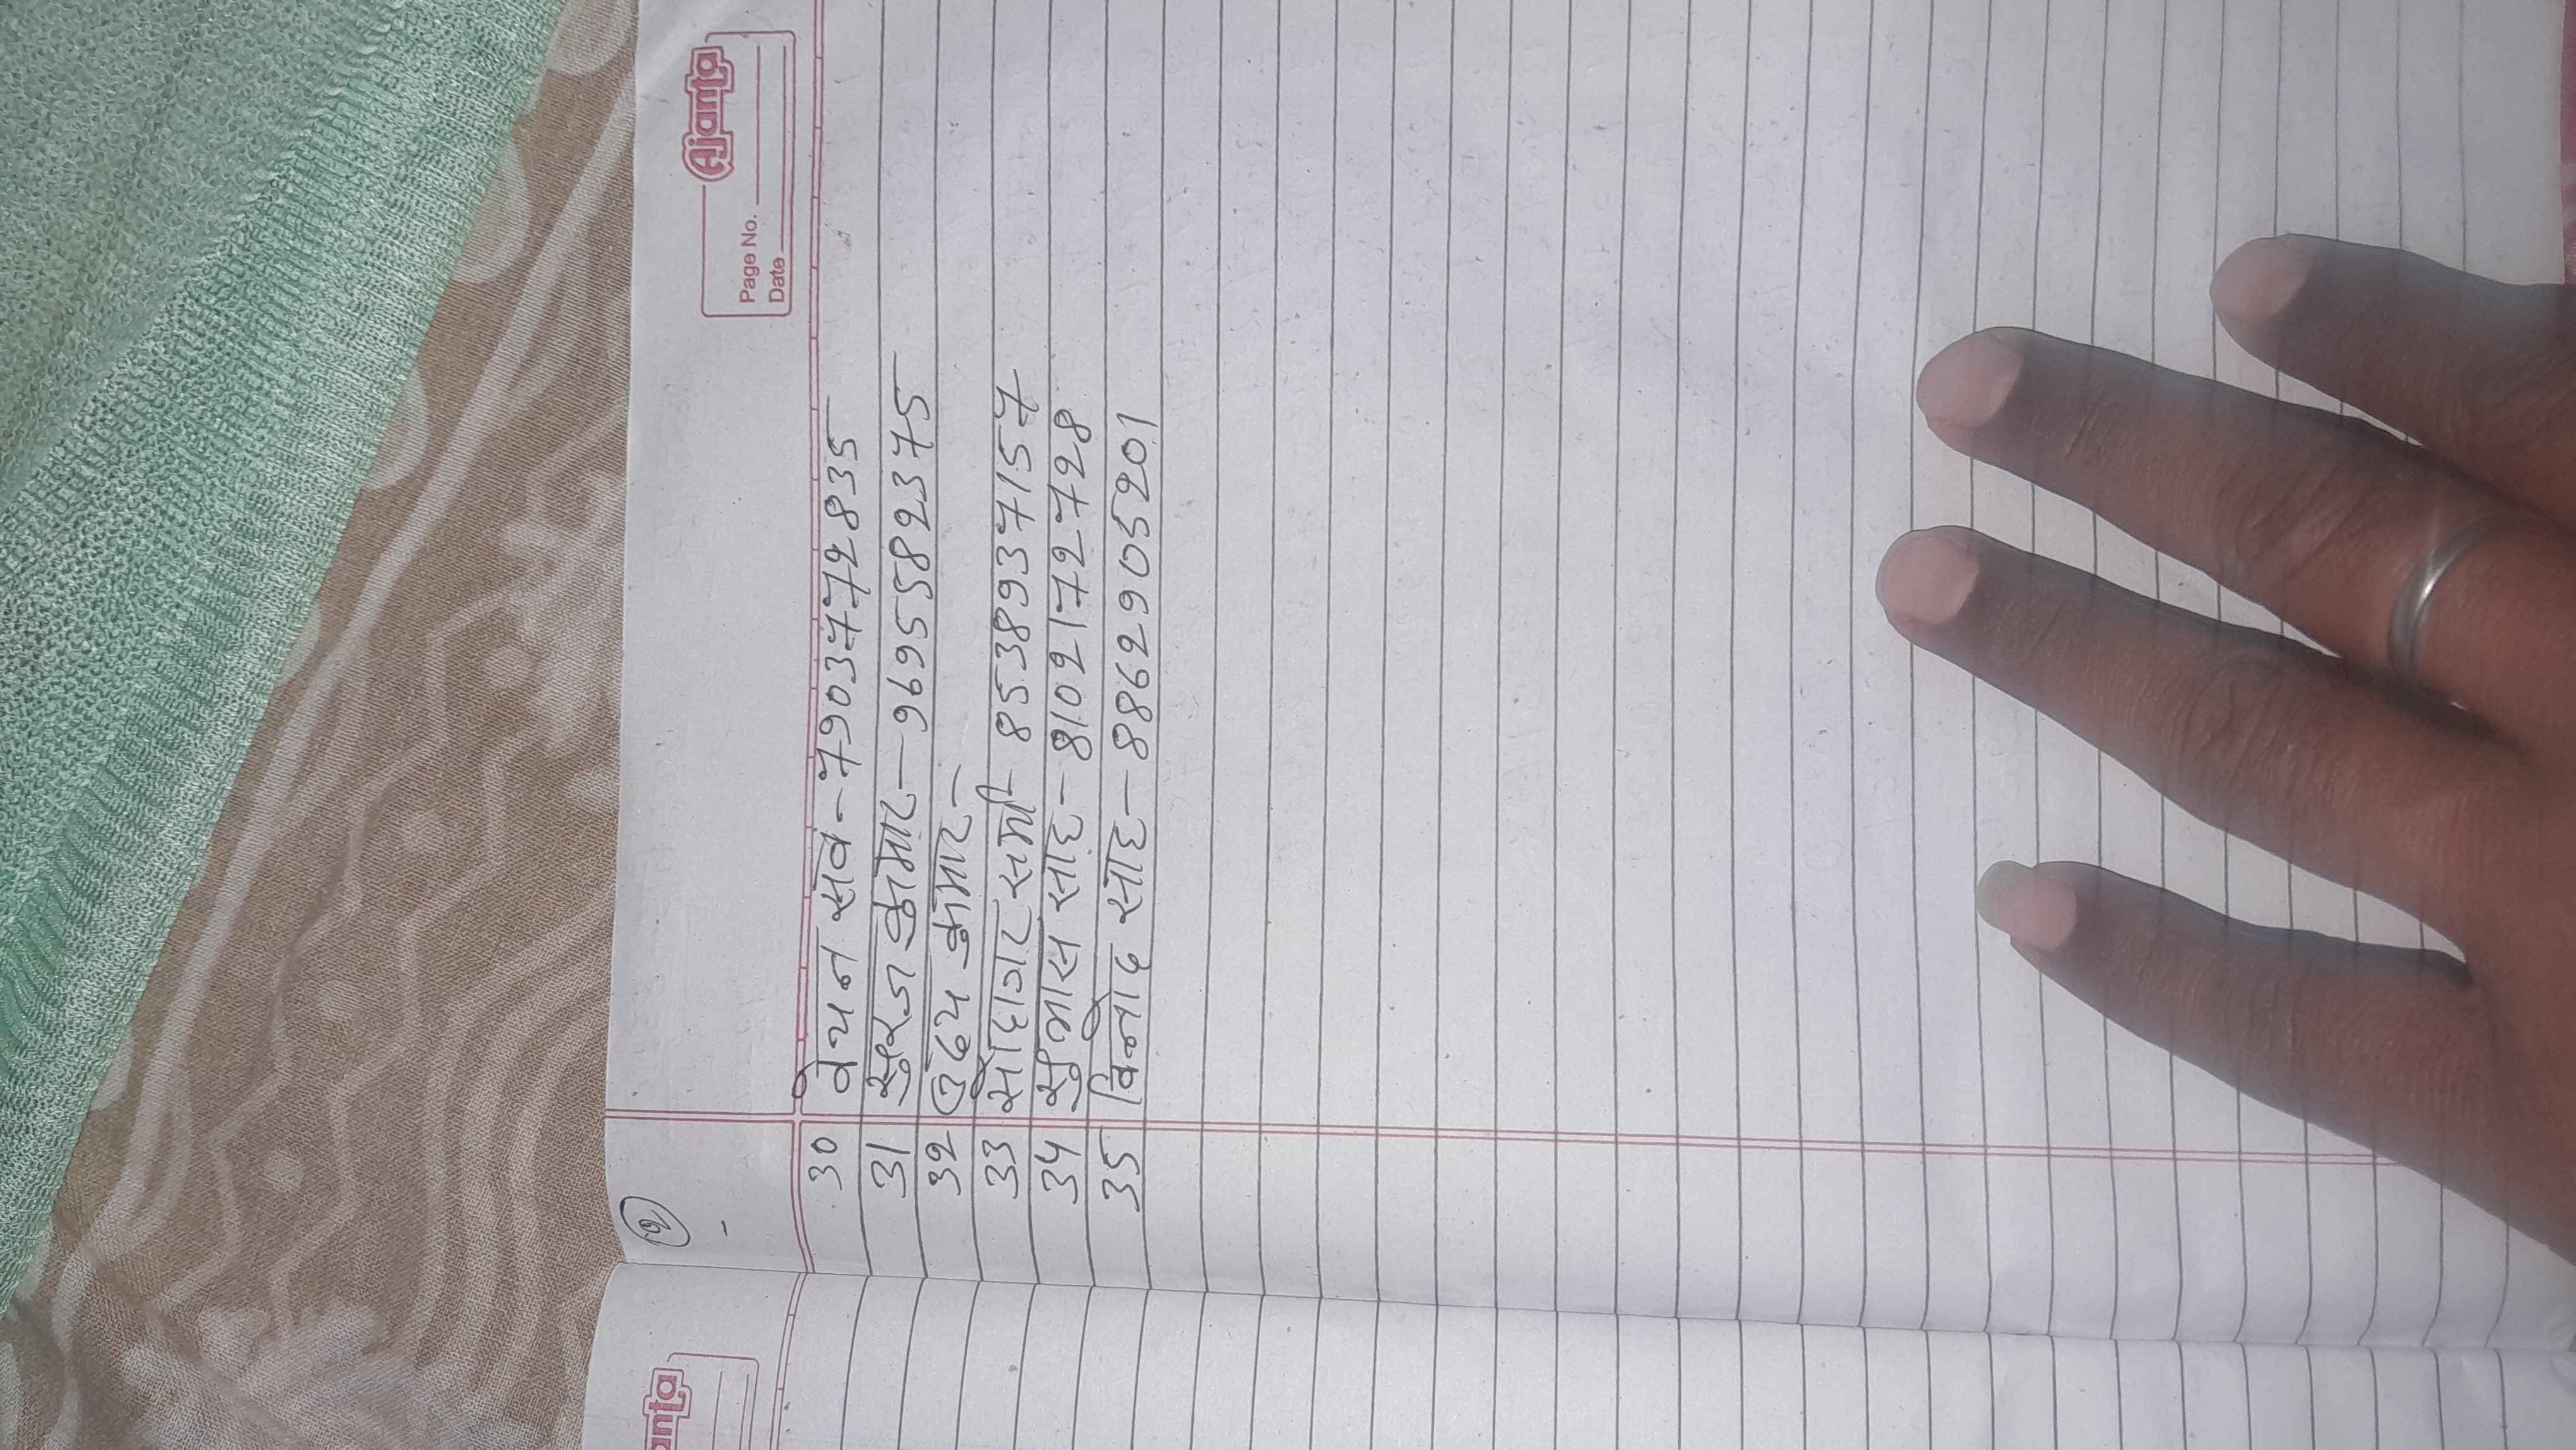 २
Ajanta
Page No.
Date
30 वेयन साव - 7903772835
31 सुरज कुमार - 9695582375
32 उदय कुमार -
33 सोदागर समी - 8538937157
34 सुभास साह - 8102172728
35 विनोद साह - 8862905201
anta